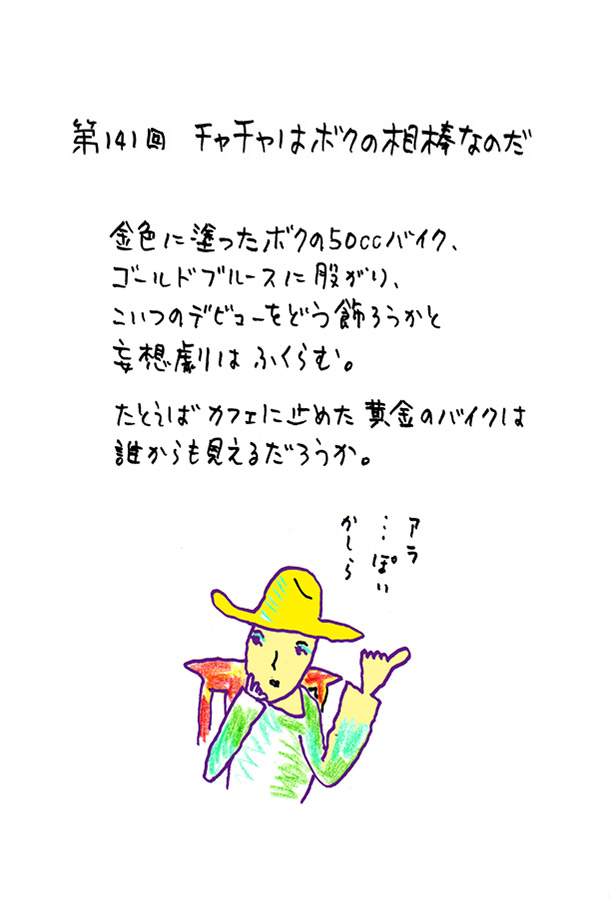 第141回 チャチャはボクの相棒なのだ
金色に塗ったボクの50ccバイク、
ゴールドブルースに股がり、
こいつのデビューをどう飾ろうかと
妄想劇はふくらむ。
たとえばカフェに止めた黄金のバイクは
誰からも見えるだろうか。
アラ
…ぽい
かしら